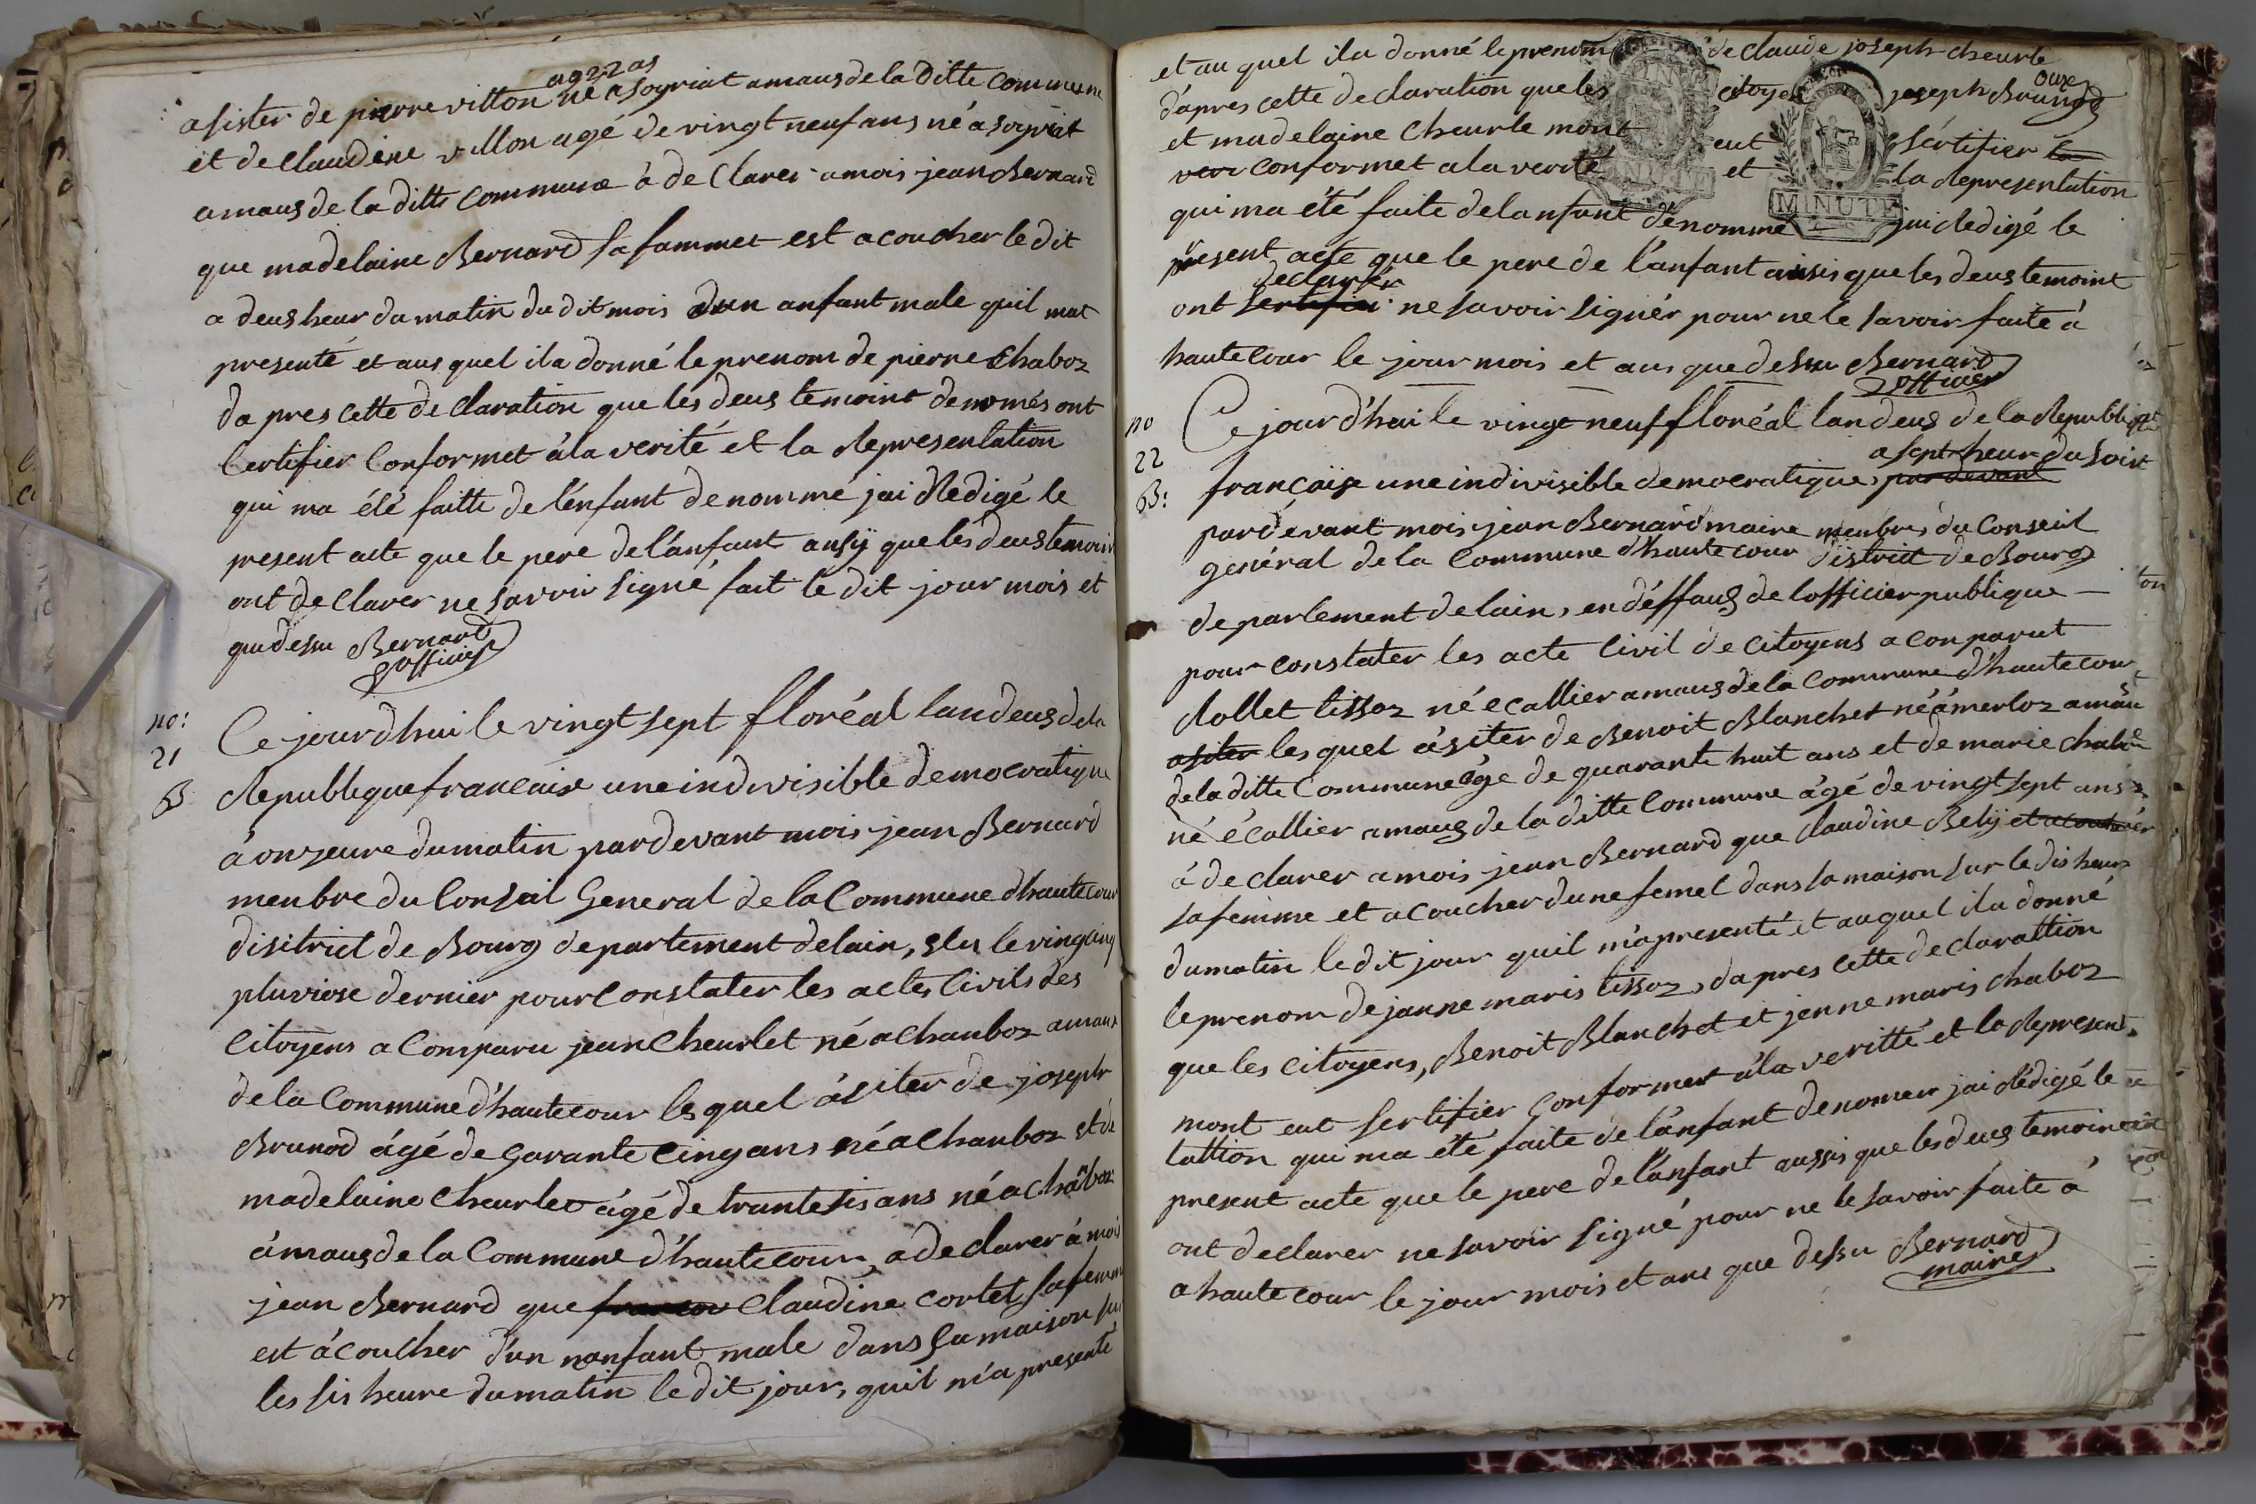 ag 22 as
asister de pierre villon né a soyriat amaus de la Ditte commune
et de Claudine villon agé de vingt neuf ans né a soyriat
amaus de la ditte Commune à de Clarer amois jean Bernard
que madelaine Bernard sa fammet est acoucher le dit
a deus heur du matin du dit mois dun anfant male quil mat
presenté et aus quel il a donné le prenom de pierre Chaboz
da pres cette de Claration que les deus temoint denomés ont
Certifier Conformet à la verité et la Representation
qui ma été faitte de lénfant denommé jai Redigé le
present acte que le pere de lánfant ausij que les deus temoint
ont de Clarer ne savoir signé fait le dit jour mois et
que dessu Bernard
officier
no:
21
B
Ce jourdhui le vingt sept floréal lan deus de la
Republique francaise une indivisible democratique
à onzeure du matin pardevant mois jean Bernard
menbre du Conseil General de la Commune dhautecour
disitrict de Bourg departement delain, slu le vingcinq
pluviose dernier pour Constater les actes Civils des
Citoyens a Comparu jean Cheurlet né a Chanboz amaus
de la Commune dhautecour lesquel ásiter de joseph
Brunod ágé de Garante Cinq ans né a Chanboz et de
madelaine Cheurlet ágé de trante sis ans né a Chãboz
ámaus de la Commune dhautecour, a de clarer á mois
jean Bernard que Claudine cortet sa femme
est ácoucher dún nanfant male dans sa maison sur
les sis heure du matin le dit jour, quil ma presenté
et au quel il a donné le prenom de Claude joseph cheurle
dapres cette declaration que les citoyen joseph Brunod
et madelaine Cheurle mont eut sértifier
conformet a la verité et la Representation
qui ma été faite de lanfant denommé jai Redigé le
present acte que le pere de lánfant ainsis que les deus temoint
declarér
ont sertifier ne savoir signér pour ne le savoir faite á
hautecour le jour mois et aus que dessu Bernard
officier
no
22
B:
Ce jourd'hui le vingt neuf floréal lan deus de la Republique
a sept heur du soir
françaixe une indivisible democratique, par devant
pardevant mois jean Bernard maire menbres du Conseil
genéral de la Commune d'hautecour district de Bourg
departement de lain, en déffaus de lofficier publique
pour constater les acte Civil de Citoyens a conparut
Collet tissoz né ecallier amaus de la Commune d'hautecour
asiter les quel ásiter de Benoit Blanchet né ámerloz amau
de la ditte Commune áge de quarante huit ans et de marie chaboz
né écallier amaus de la ditte Commune ágé de vingt sept ans
á declarer amois jean Bernard que Claudine Belij et acoucher
sa femme et acoucher dune femel dans sa maison sur le dis heur
du matin le dit jour quil ma presenté et auquel il a donné
le prenom de janne maris tissoz, dapres cette declarattion
que les citoyens, Benoit Blanchet et jenne maris chaboz
mont eut sertifier Conformet á la veritté et la Represent
tattion qui ma été faite de lánfant denomer jai Rédigé le
present acte que le pere de lánfant aussis que les deus temoint
ont declarer ne savoir signé pour ne le savoir faite á
a hautecour le jour mois et ans que dessu Bernard
maire
MINUTE